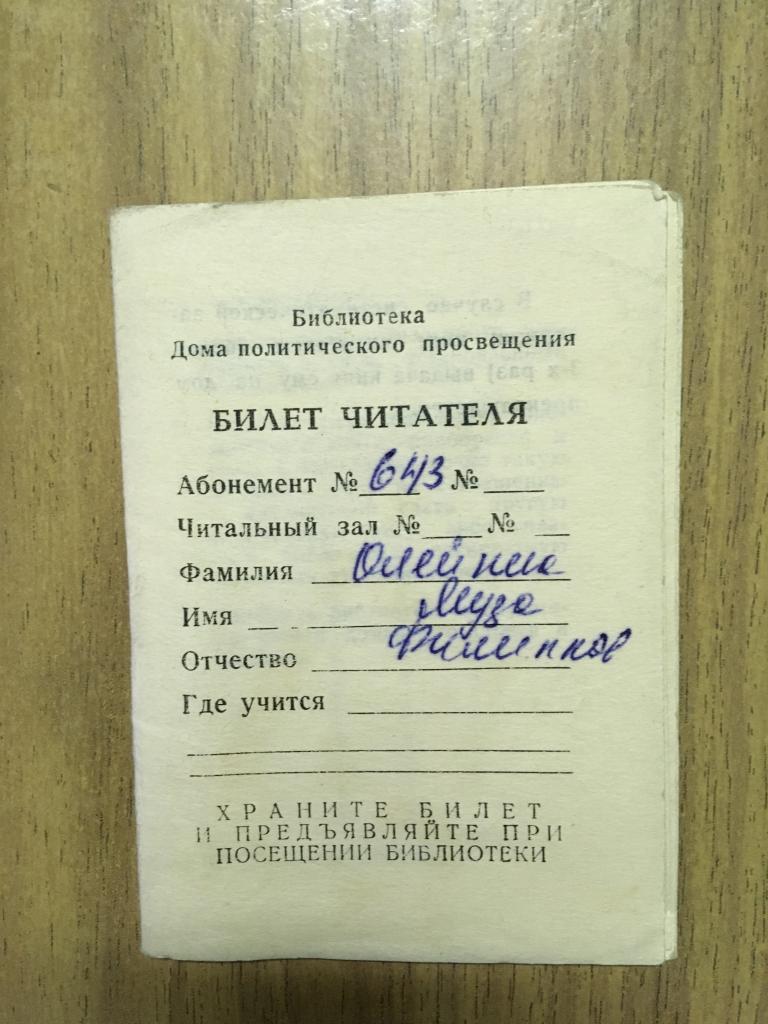 Библиотека
Дома политического просвещения
БИЛЕТ ЧИТАТЕЛЯ
Абонемент № 643 № ____
Читальный зал № ____ № ___
Фамилия Олейник
Имя Муза
Отчество Филиппов
Где учится
ХРАНИТЕ БИЛЕТ
И ПРЕДЪЯВЛЯЙТЕ ПРИ
ПОСЕЩЕНИИ БИБЛИОТЕКИ